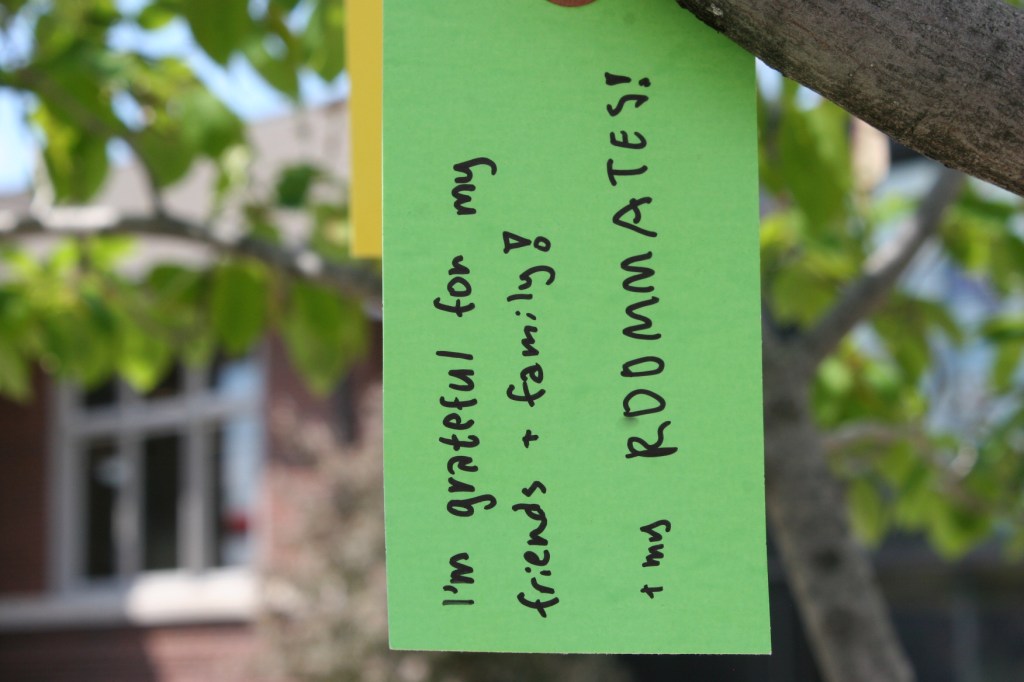 I'm grateful for my
friends + family!
+ my ROOMMATES!